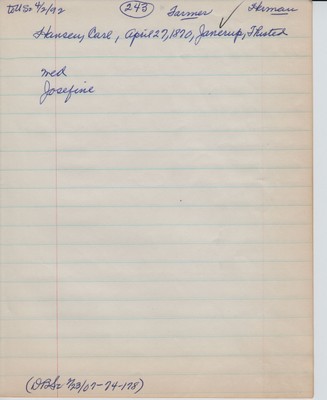 to U.S. 4/2/92 (243) Farmer ✓ Herman
Hansen, Carl, April 27, 1870, Janerup, Thisted
med
Josefine
(DBS= 7/23/07-74-178)